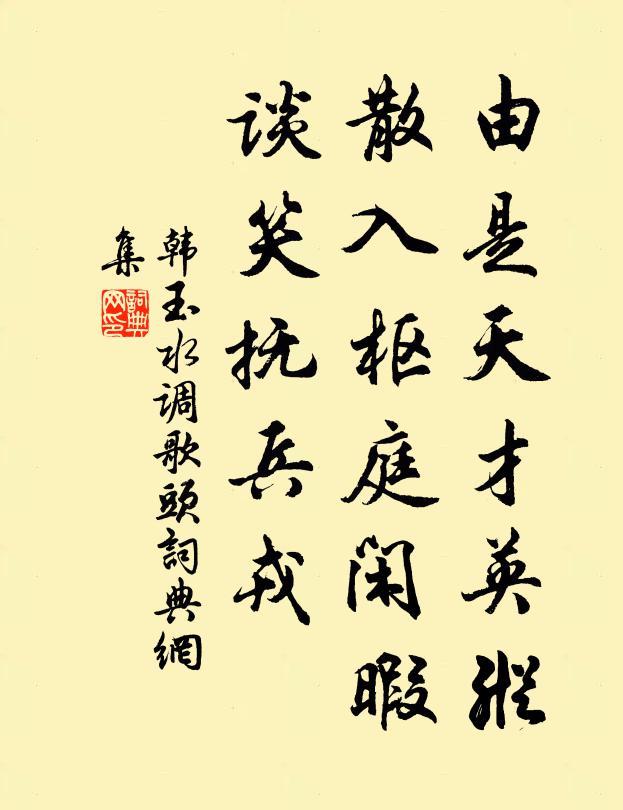 由是天才英纵
散入枢庭闲暇
谈笑抚兵戎
韩玉水调歌头詞典網
集
詞典网印